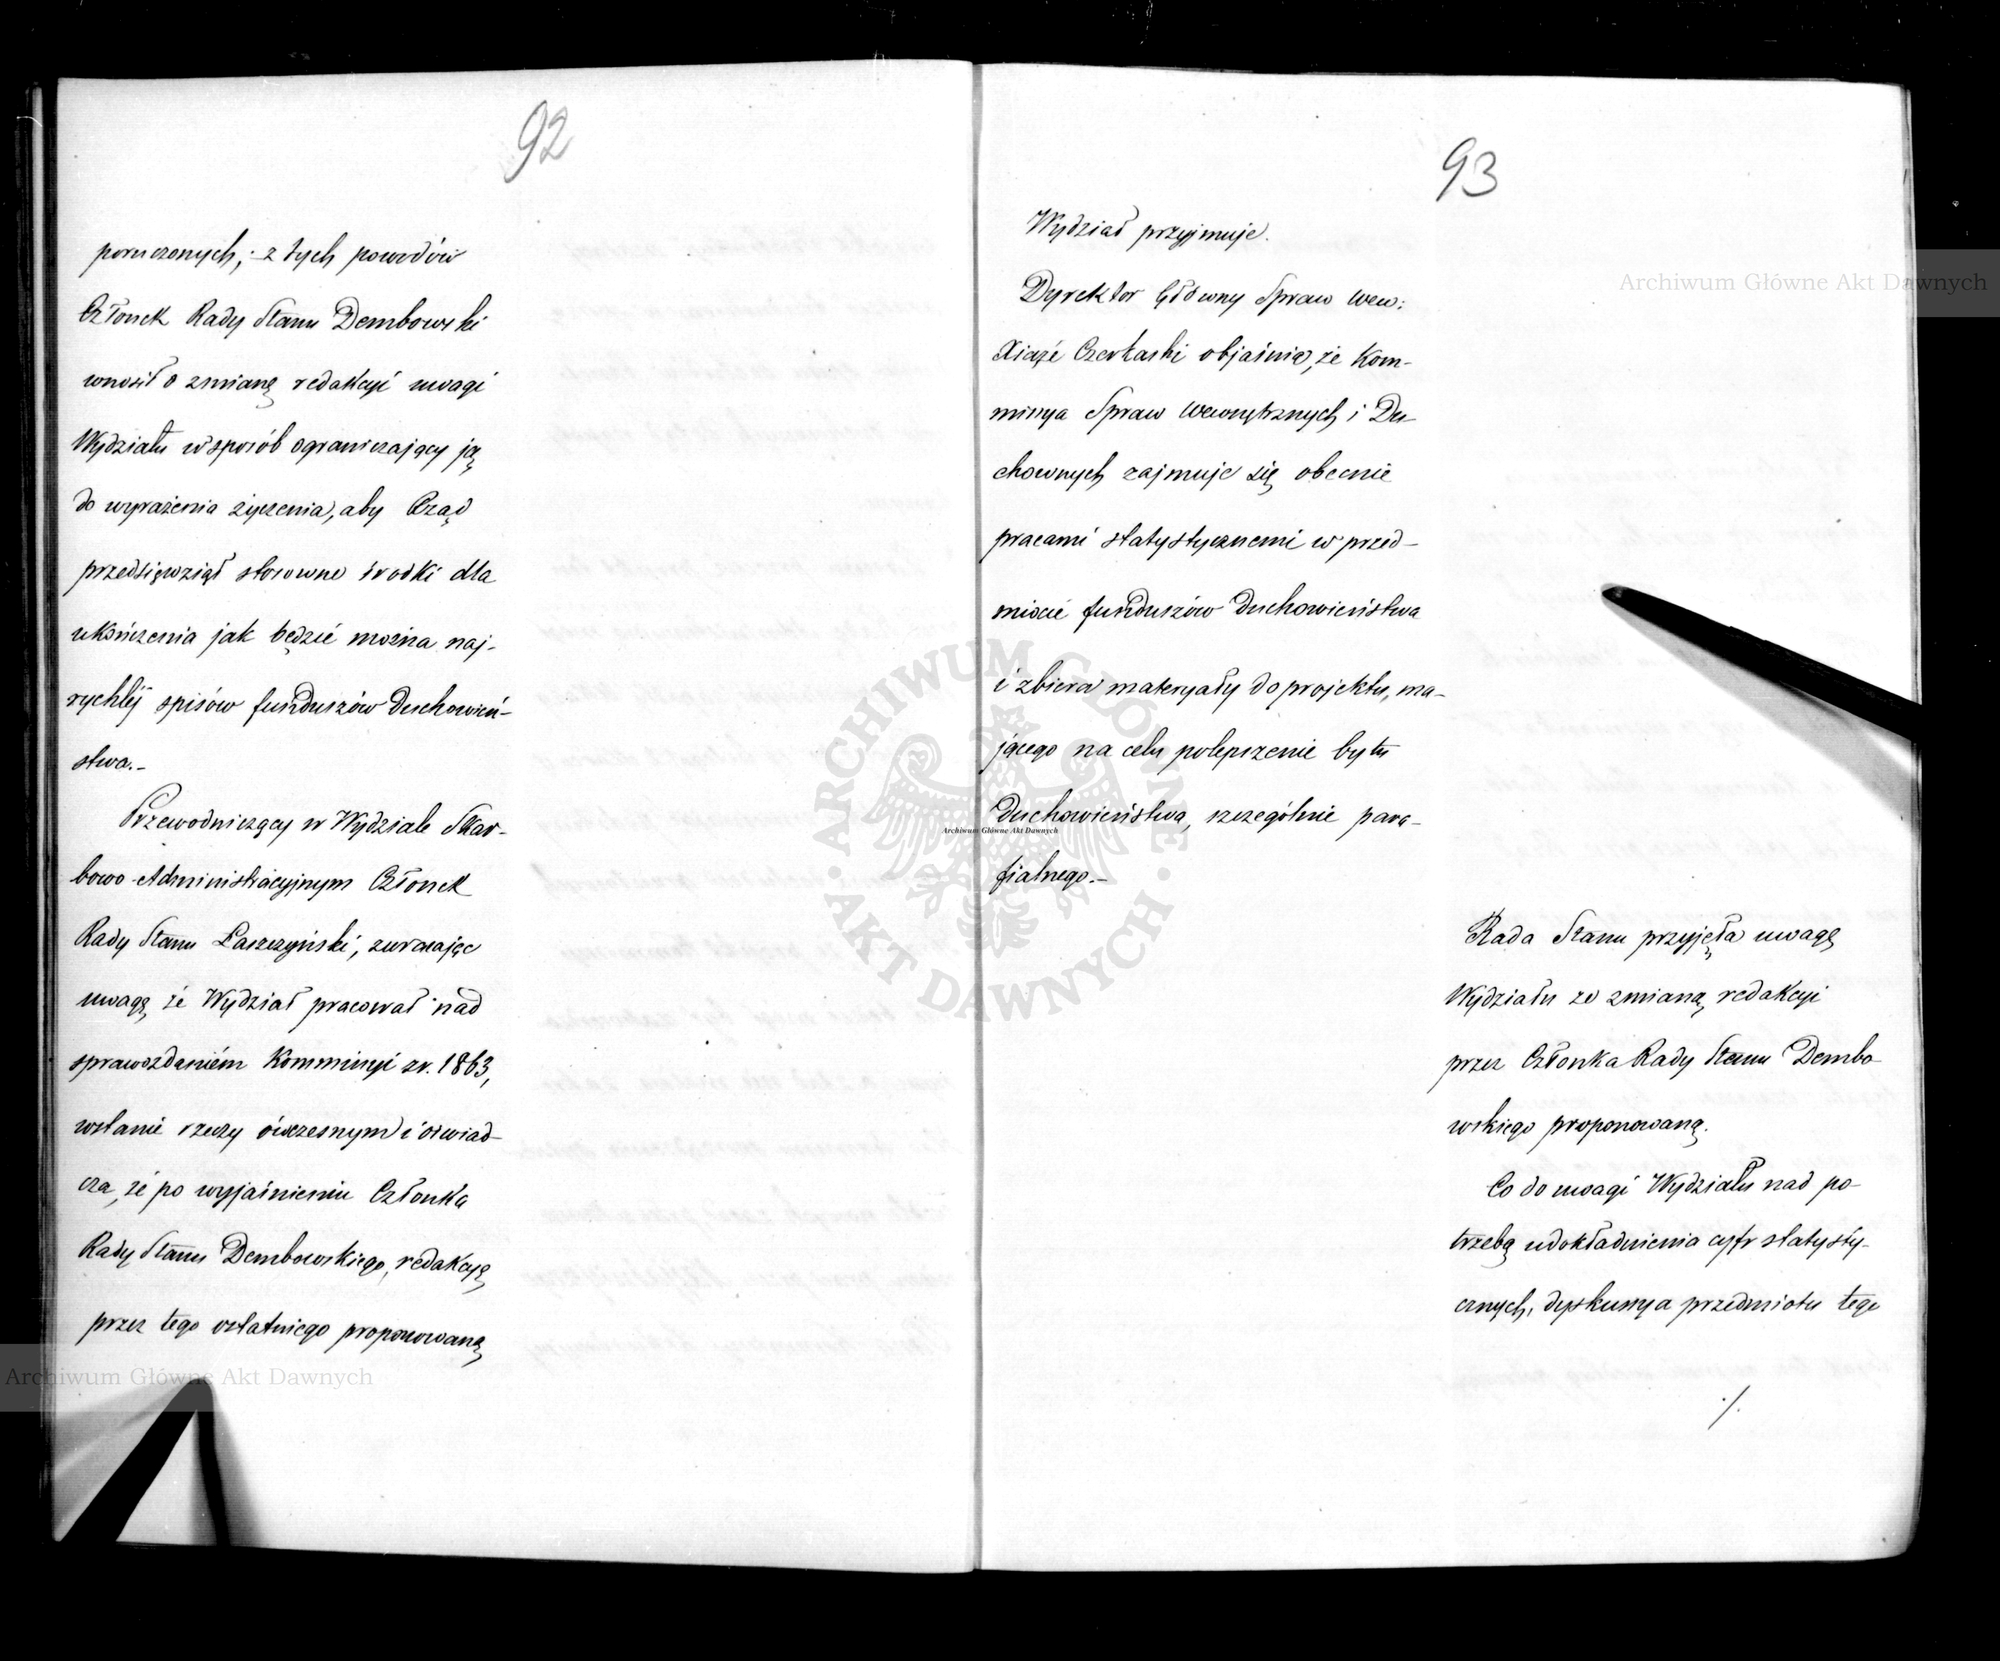 92
poruczonych; z tych powodów
Członek Rady Stanu Dembowski
wnosił o zmianę redakcyi uwagi
Wydziału w sposób ograniczający ją
do wyrażenia życzenia, aby Rząd
przedsięwziął stosowne środki dla
ukończenia jak będzie można naj-
rychlej spisów funduszów Duchowień-
stwa.-
Przewodniczący w Wydziale Skar-
bowo-Administracyjnym Członek
Rady Stanu Łaszczyński, zwracając
uwagę, że Wydział pracował nad
sprawozdaniem Kommissyi z r. 1863,
w stanie rzeczy ówczesnym i oświad-
cza, że po wyjaśnieniu Członka
Rady Stanu Dembowskiego, redakcyą
przez tego ostatniego proponowaną
93
Wydział przyjmuje.
Dyrektor Główny Spraw Wew:
Xiążę Czerkaski objaśnia, że Kom-
missya Spraw Wewnętrznych i Du-
chownych zajmuje się obecnie
pracami statystycznemi w przed-
miocie funduszów Duchowieństwa
i zbiera materyały do projektu, ma-
jącego na celu polepszenie bytu
Duchowieństwa, szczególnie para-
fialnego.-
Rada Stanu przyjęła uwagę
Wydziału ze zmianą redakcyi
przez Członka Rady Stanu Dembo
wskiego proponowaną.
Co do uwagi Wydziału nad po-
trzebą udokładnienia cyfr statysty-
cznych, dyskussya przedmiotu tego
./.
Archiwum Główne Akt Dawnych
ARCHIWUM GŁÓWNE
AKT DAWNYCH
Archiwum Główne Akt Dawnych
Archiwum Główne Akt Dawnych